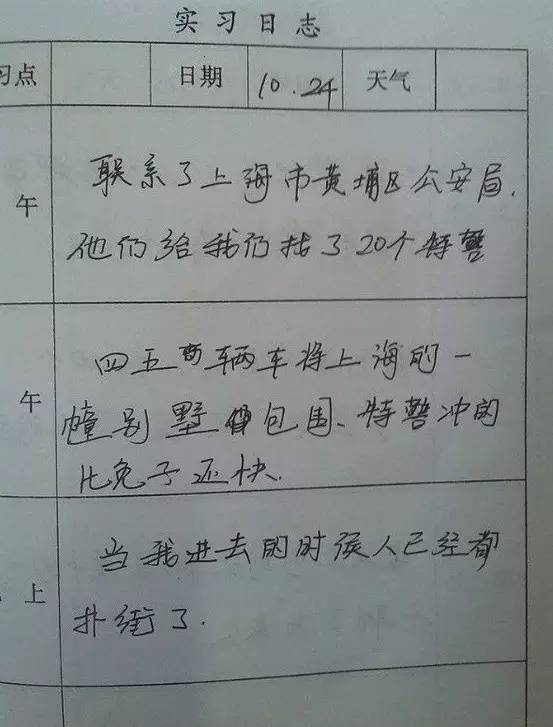 实习日志
习点 日期 10.24 天气
午
联系了上海市黄埔区公安局.
他们给我们找了20个特警
午
四五辆车将上海的一
幢别墅包围、特警冲的
比兔子还快.
上
当我进去的时候人已经都
扑街了.